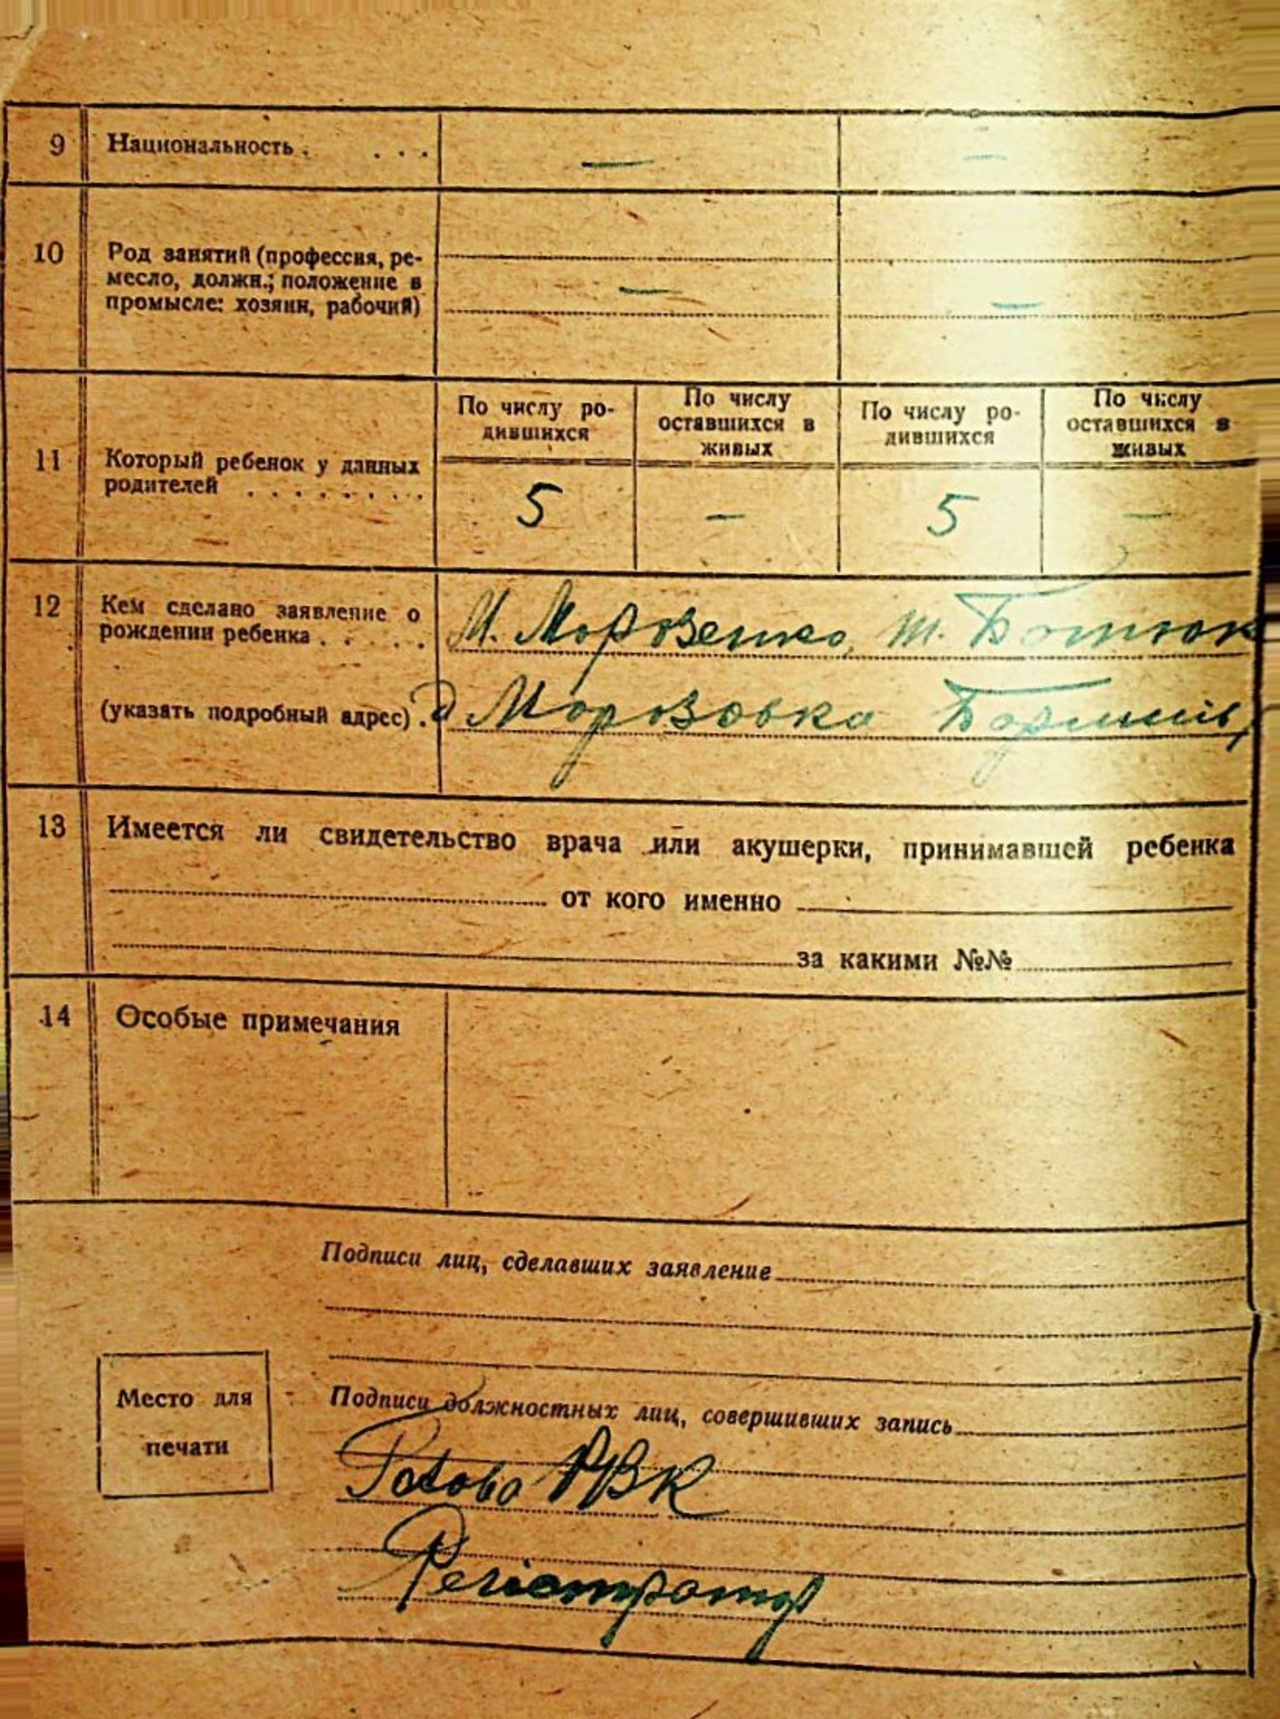 9 Национальность . . . . — —
10 Род занятий (профессия, ре-
месло, должн.; положение в
промысле: хозяин, рабочий) — —
11 Который ребенок у данных
родителей . . . . . . . .
По числу ро-
дившихся
По числу
оставшихся в
живых
По числу ро-
дившихся
По числу
оставшихся в
живых
5 — 5 —
12 Кем сделано заявление о
рождении ребенка . . . . .
М. Морозенко,
(указать подробный адрес) .
д Морозовка
13 Имеется ли свидетельство врача или акушерки, принимавшей ребенка
от кого именно
за какими №№
14 Особые примечания
Подписи лиц, сделавших заявление
Место для
печати
Подписи должностных лиц, совершивших запись
РВК
Регістратор